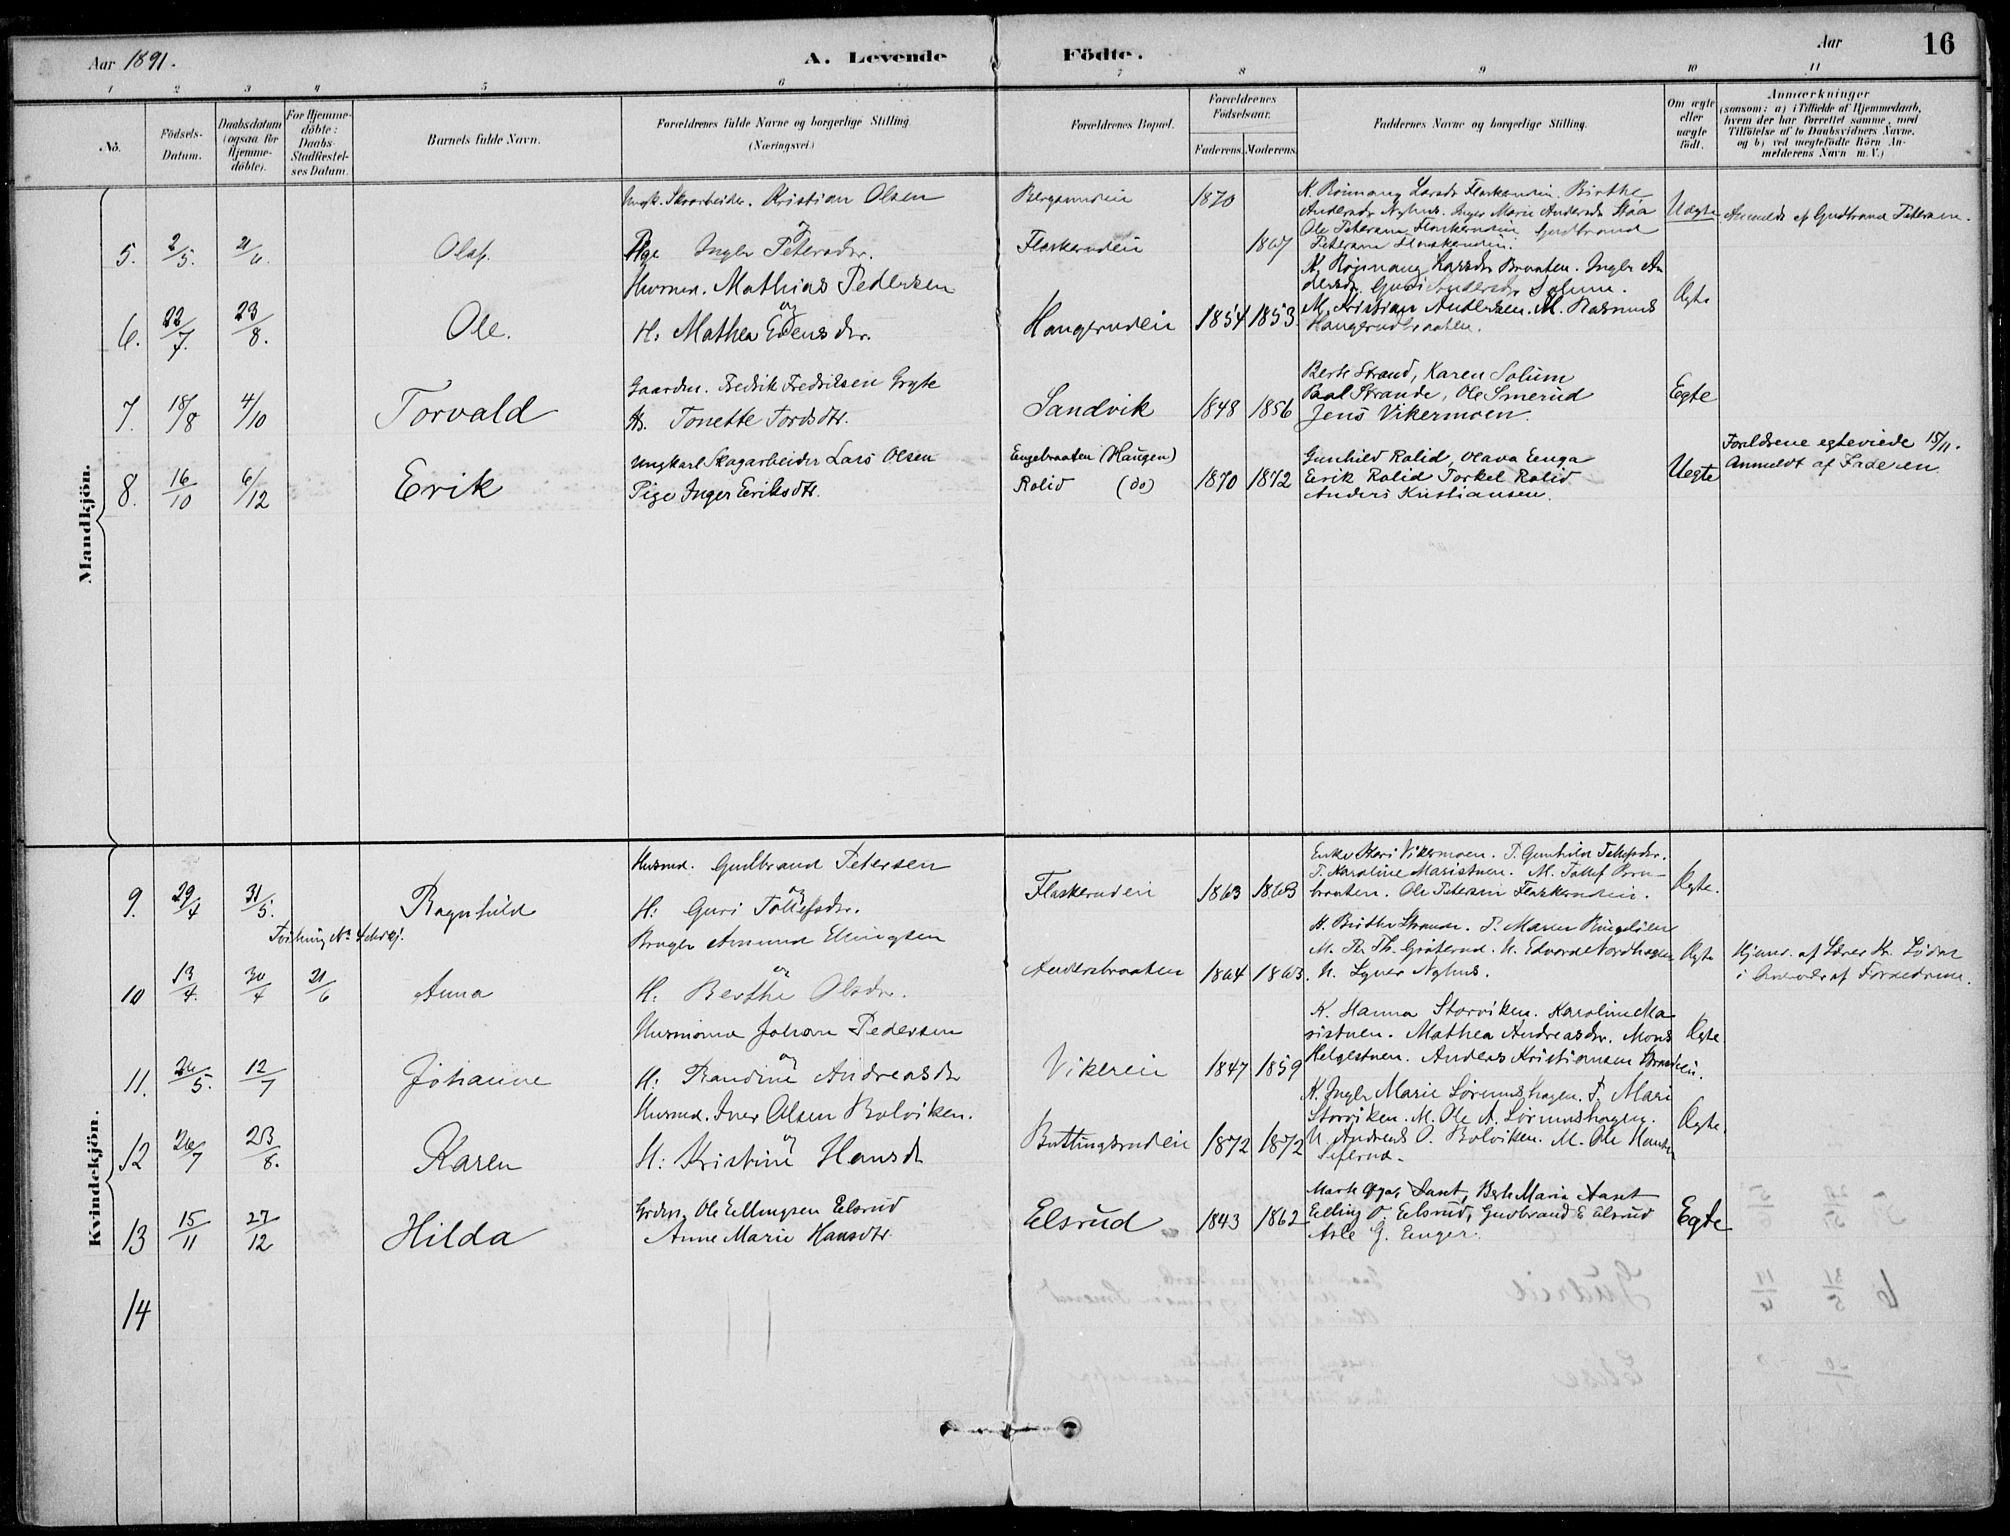 Aar 1891.
A. Levende Födte.
Aar
16
1 2 3 4 5 6 7 8 9 10 11
No.
Födsels-Datum.
Daabsdatum (ogsaa for Hjemme-döbte).
For Hjemme-döbte: Daabs-Stadfæstel-ses Datum.
Barnets fulde Navn.
Forældrenes fulde Navne og borgerlige Stilling
(Næringsvei.)
Forældrenes Bopæl.
Forældrenes Födselsaar.
Faderens. Moderens.
Faddernes Navne og borgerlige Stilling.
Om ægte eller uægte födt.
Anmærkninger
(saasom: a) i Tilfælde af Hjemmedaab,
hvem der har forrettet samme, med
Tilföielse af to Daabsvidners Navne.
og b) ved uægtefödte Börn An-
melderens Navn m. V.)
Mandkjön.
5. 2/5. 21/6. Olaf.
Ungk. Skovarbeider. Kristian Olsen
og
Pige Ingeb. Petersdr.
Bergsundeie 1870
Flaskerudeie 1867
K. Rönnaug Larsdr Flaskerudeie. Birthe
Andersdr Nyhus. Inger Marie Andersdr
Ole Petersen Flaskerudeie Gudbrand
Petersen Flaskerudeie.
Uægte
Anmeldt af Gudbrand Petersen.
6. 22/7. 23/8. Ole.
Husmd. Mathias Pedersen
og
H. Mathea Evensdr.
Haugerudeie 1854 1853
K. Rönnaug Larsdr Braaten. Ingeb. An
dersdr. Guri Andersdr Solum.
M. Kristian Andersen. M. Rasmus
Haugerudbraaten.
Ægte
7. 18/8 4/10 Torvald
Gaardm. Fredrik Fredriksen Gryte
H. Tonette Tordsdtr.
Sandvik 1848 1856
Berte Strand, Karen Solum
Paal Strande, Ole Smerud
Jens Vikermoen.
Egte
8. 16/10 6/12 Erik
Ungkarl Skogarbeider Lars Olsen
Pige Inger Eriksdtr.
Engebraaten (Haugen)
Rolid (do) 1870 1872
Gunhild Rolid, Olava Enga
Erik Rolid Torkel Rolid
Anders Kristiansen.
Uegte
Foreldrene egteviede 15/11.
Anmeldt af Faderen.
Kvindekjön.
9. 29/4 31/5. Ragnhild
Husmd. Gudbrand Petersen
og
H: Guri Tollefsdr.
Flaskerudeie 1863 1868
Enke Kari Vikermoen. P. Gunhild Tollefsdr.
P. Karoline Maristuen. M. Tollef
braaten. Ole Petersen Flaskerudeie.
Ægte.
10 13/4. 30/4 21/6 Anna
Bruger Amund Ellingsen
og
H. Berthe Olsdr.
Andersbraaten 1864 1863.
K. Birthe Strande. P. Maren Ringelien
M. Th. Grøterud. U. Edvard Nordhagen
U. Syver Nyhus.
Ægte
Hjemd. af Lærer
i Overvær af Forældrene.
11. 26/5. 12/7 Johanne
Husmand Johan Pedersen
og
H: Randine Andreasdr
Vikereie 1847 1859
K. Hanna Storviken. Karoline Ma
ristuen. Mathea Andreasdr. Mons
Helgestuen. Andreas Kristiansen Strandeie.
Ægte
12 26/7 23/8. Karen
Husmd. Iver Olsen Bolviken.
og
H: Kristine Hansdr
Buttingsrudeie 1872 1872
K. Ingeb. Marie Lörumshagen. P. Mari
Storviken. M. Ole A. Lörumshagen.
U. Andreas O. Bolviken. M. Ole Hansen
Ægte.
13 15/11 27/12 Hilda
Grdm. Ole Ellingsen Elsrud
Anne Marie Hansdtr
Elsrud 1843 1862
Marte Aaset, Berte Maria Aaset
Elling O. Elsrud, Gudbrand E Elsrud
Asle G. Enger.
Egte
14